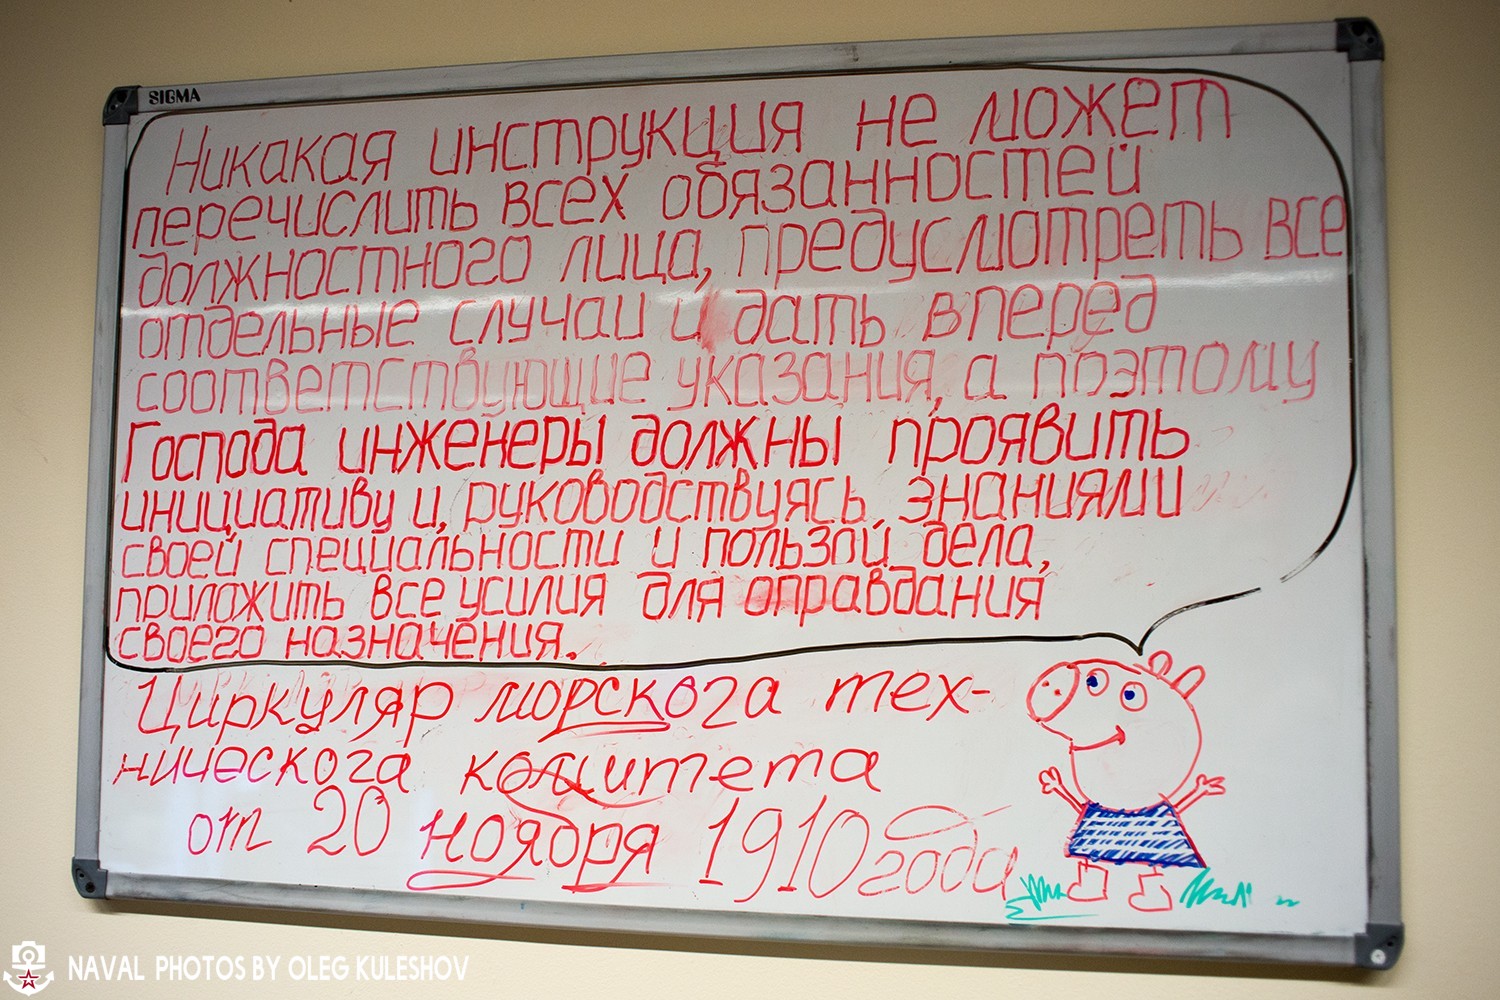 SIGMA
Никакая инструкция не может
перечислить всех обязанностей
должностного лица, предусмотреть все
отдельные случаи и дать вперед
соответствующие указания, а поэтому
Господа инженеры должны проявить
инициативу и, руководствуясь знаниями
своей специальности и пользой дела,
приложить все усилия для оправдания
своего назначения.
Циркуляр морскога тех-
ническога комитета
от 20 ноября 1910 года
NAVAL PHOTOS BY OLEG KULESHOV